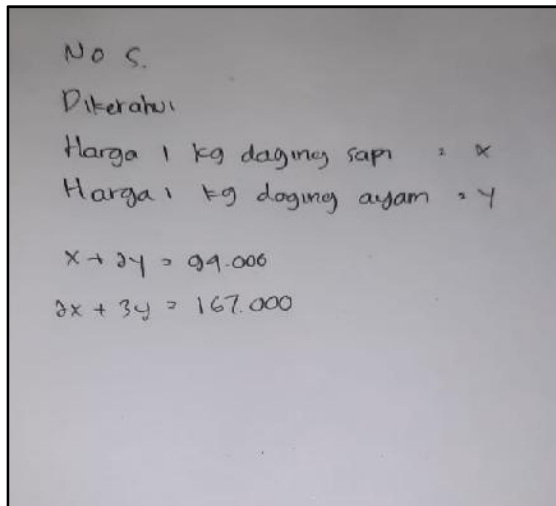 No 5.
Diketahui
Harga 1 kg daging sapi = x
Harga 1 kg daging ayam = y
x + 2y = 94.000
2x + 3y = 167.000